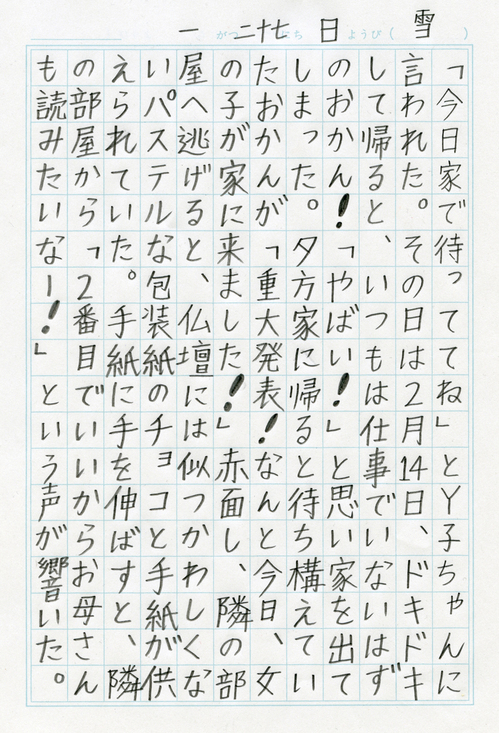 一 がつ 二十七 にち 日 ようび( 雪 )
「今日家で待っててね」とY子ちゃんに
言われた。その日は2月14日、ドキドキ
して帰ると、いつもは仕事でいないはず
のおかん！「やばい！」と思い家を出て
しまった。夕方家に帰ると待ち構えてい
たおかんが「重大発表！なんと今日、女
の子が家に来ました！」赤面し、隣の部
屋へ逃げると、仏壇には似つかわしくな
いパステルな包装紙のチョコと手紙が供
えられていた。手紙に手を伸ばすと、隣
の部屋から「2番目でいいからお母さん
も読みたいなー！」という声が響いた。